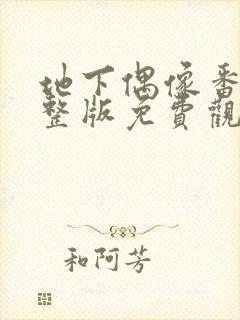 地下偶像番
整版免費觀
和阿芳